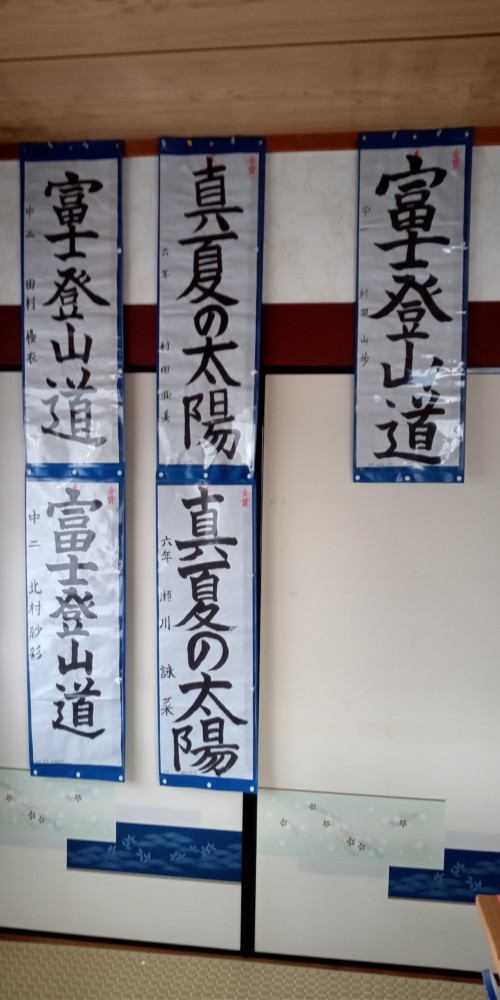 金賞
富士登山道
中
村田
山歩
金賞
真夏の太陽
六年
村田亜美
富士登山道
中二
田村優衣
金賞
真夏の太陽
六年
瀬川詠菜
金賞
富士登山道
中二
北村紗彩